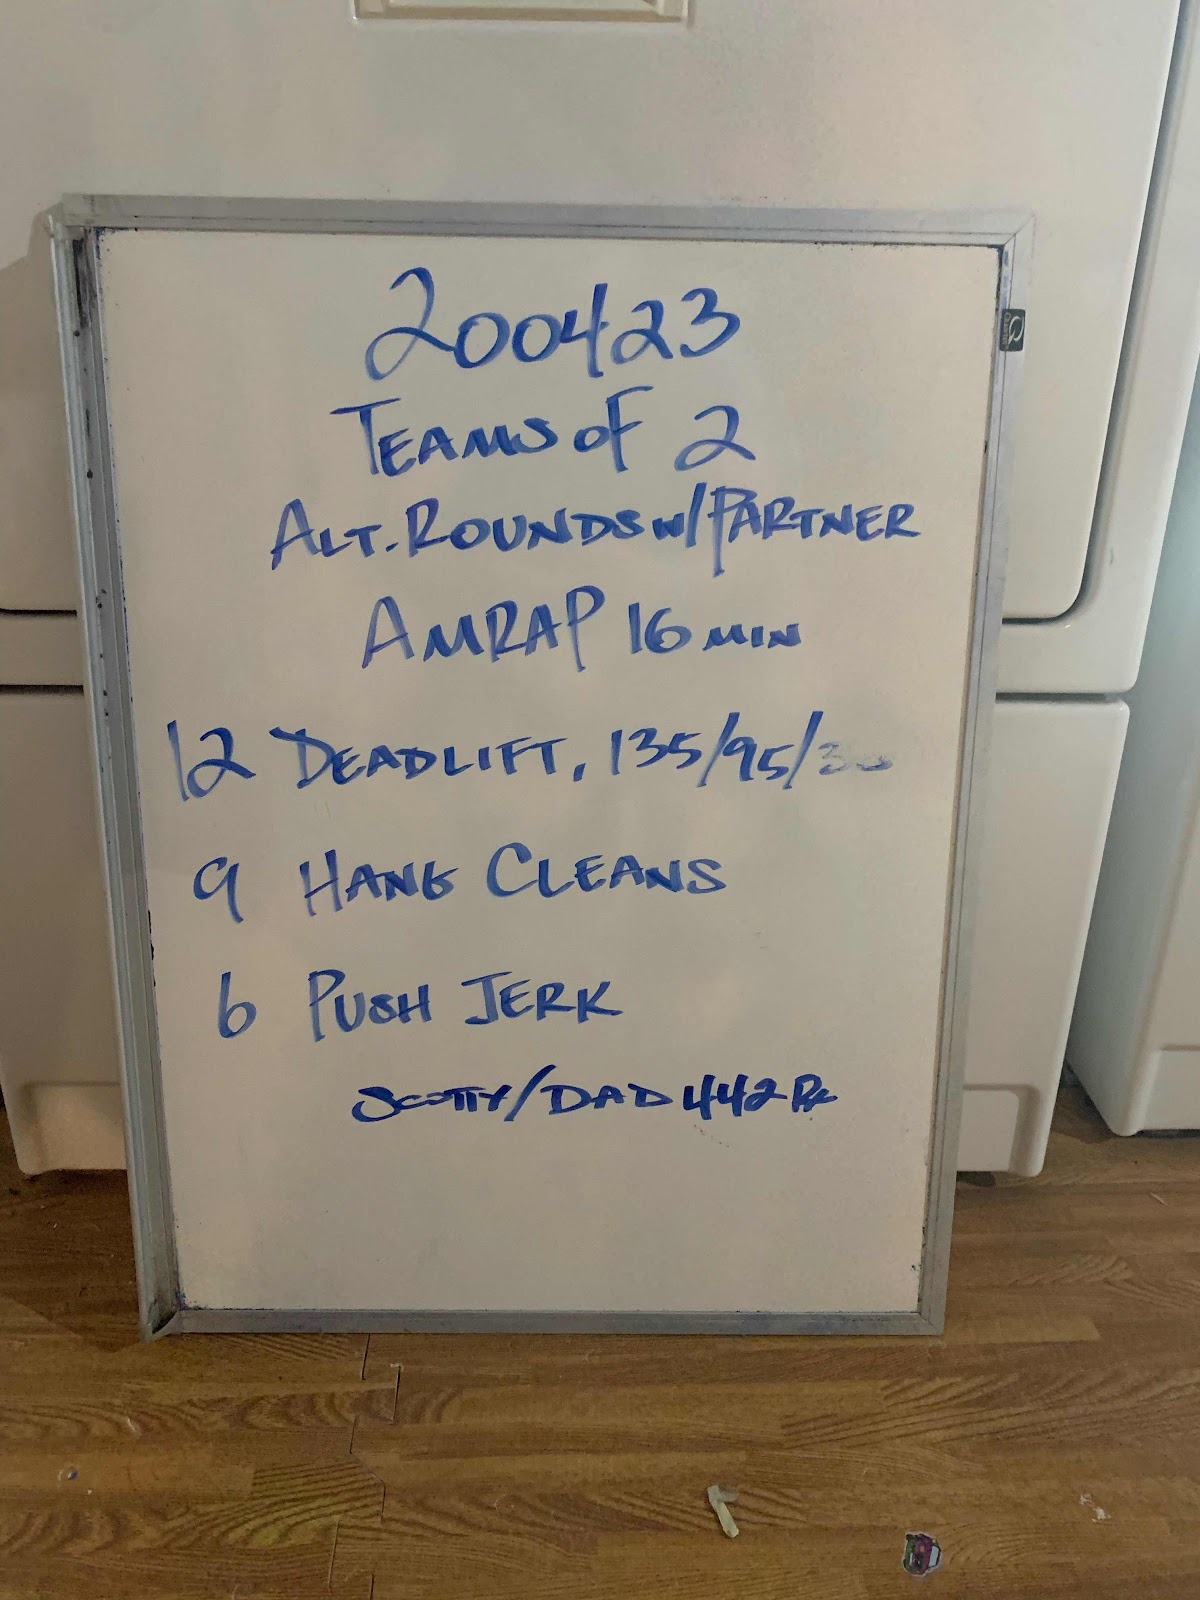 200423
TEAMS OF 2
ALT. ROUNDS W/ PARTNER
AMRAP 16 MIN
12 DEADLIFT, 135/95/
9 HANG CLEANS
6 PUSH JERK
SCOTTY/DAD 442 Rx